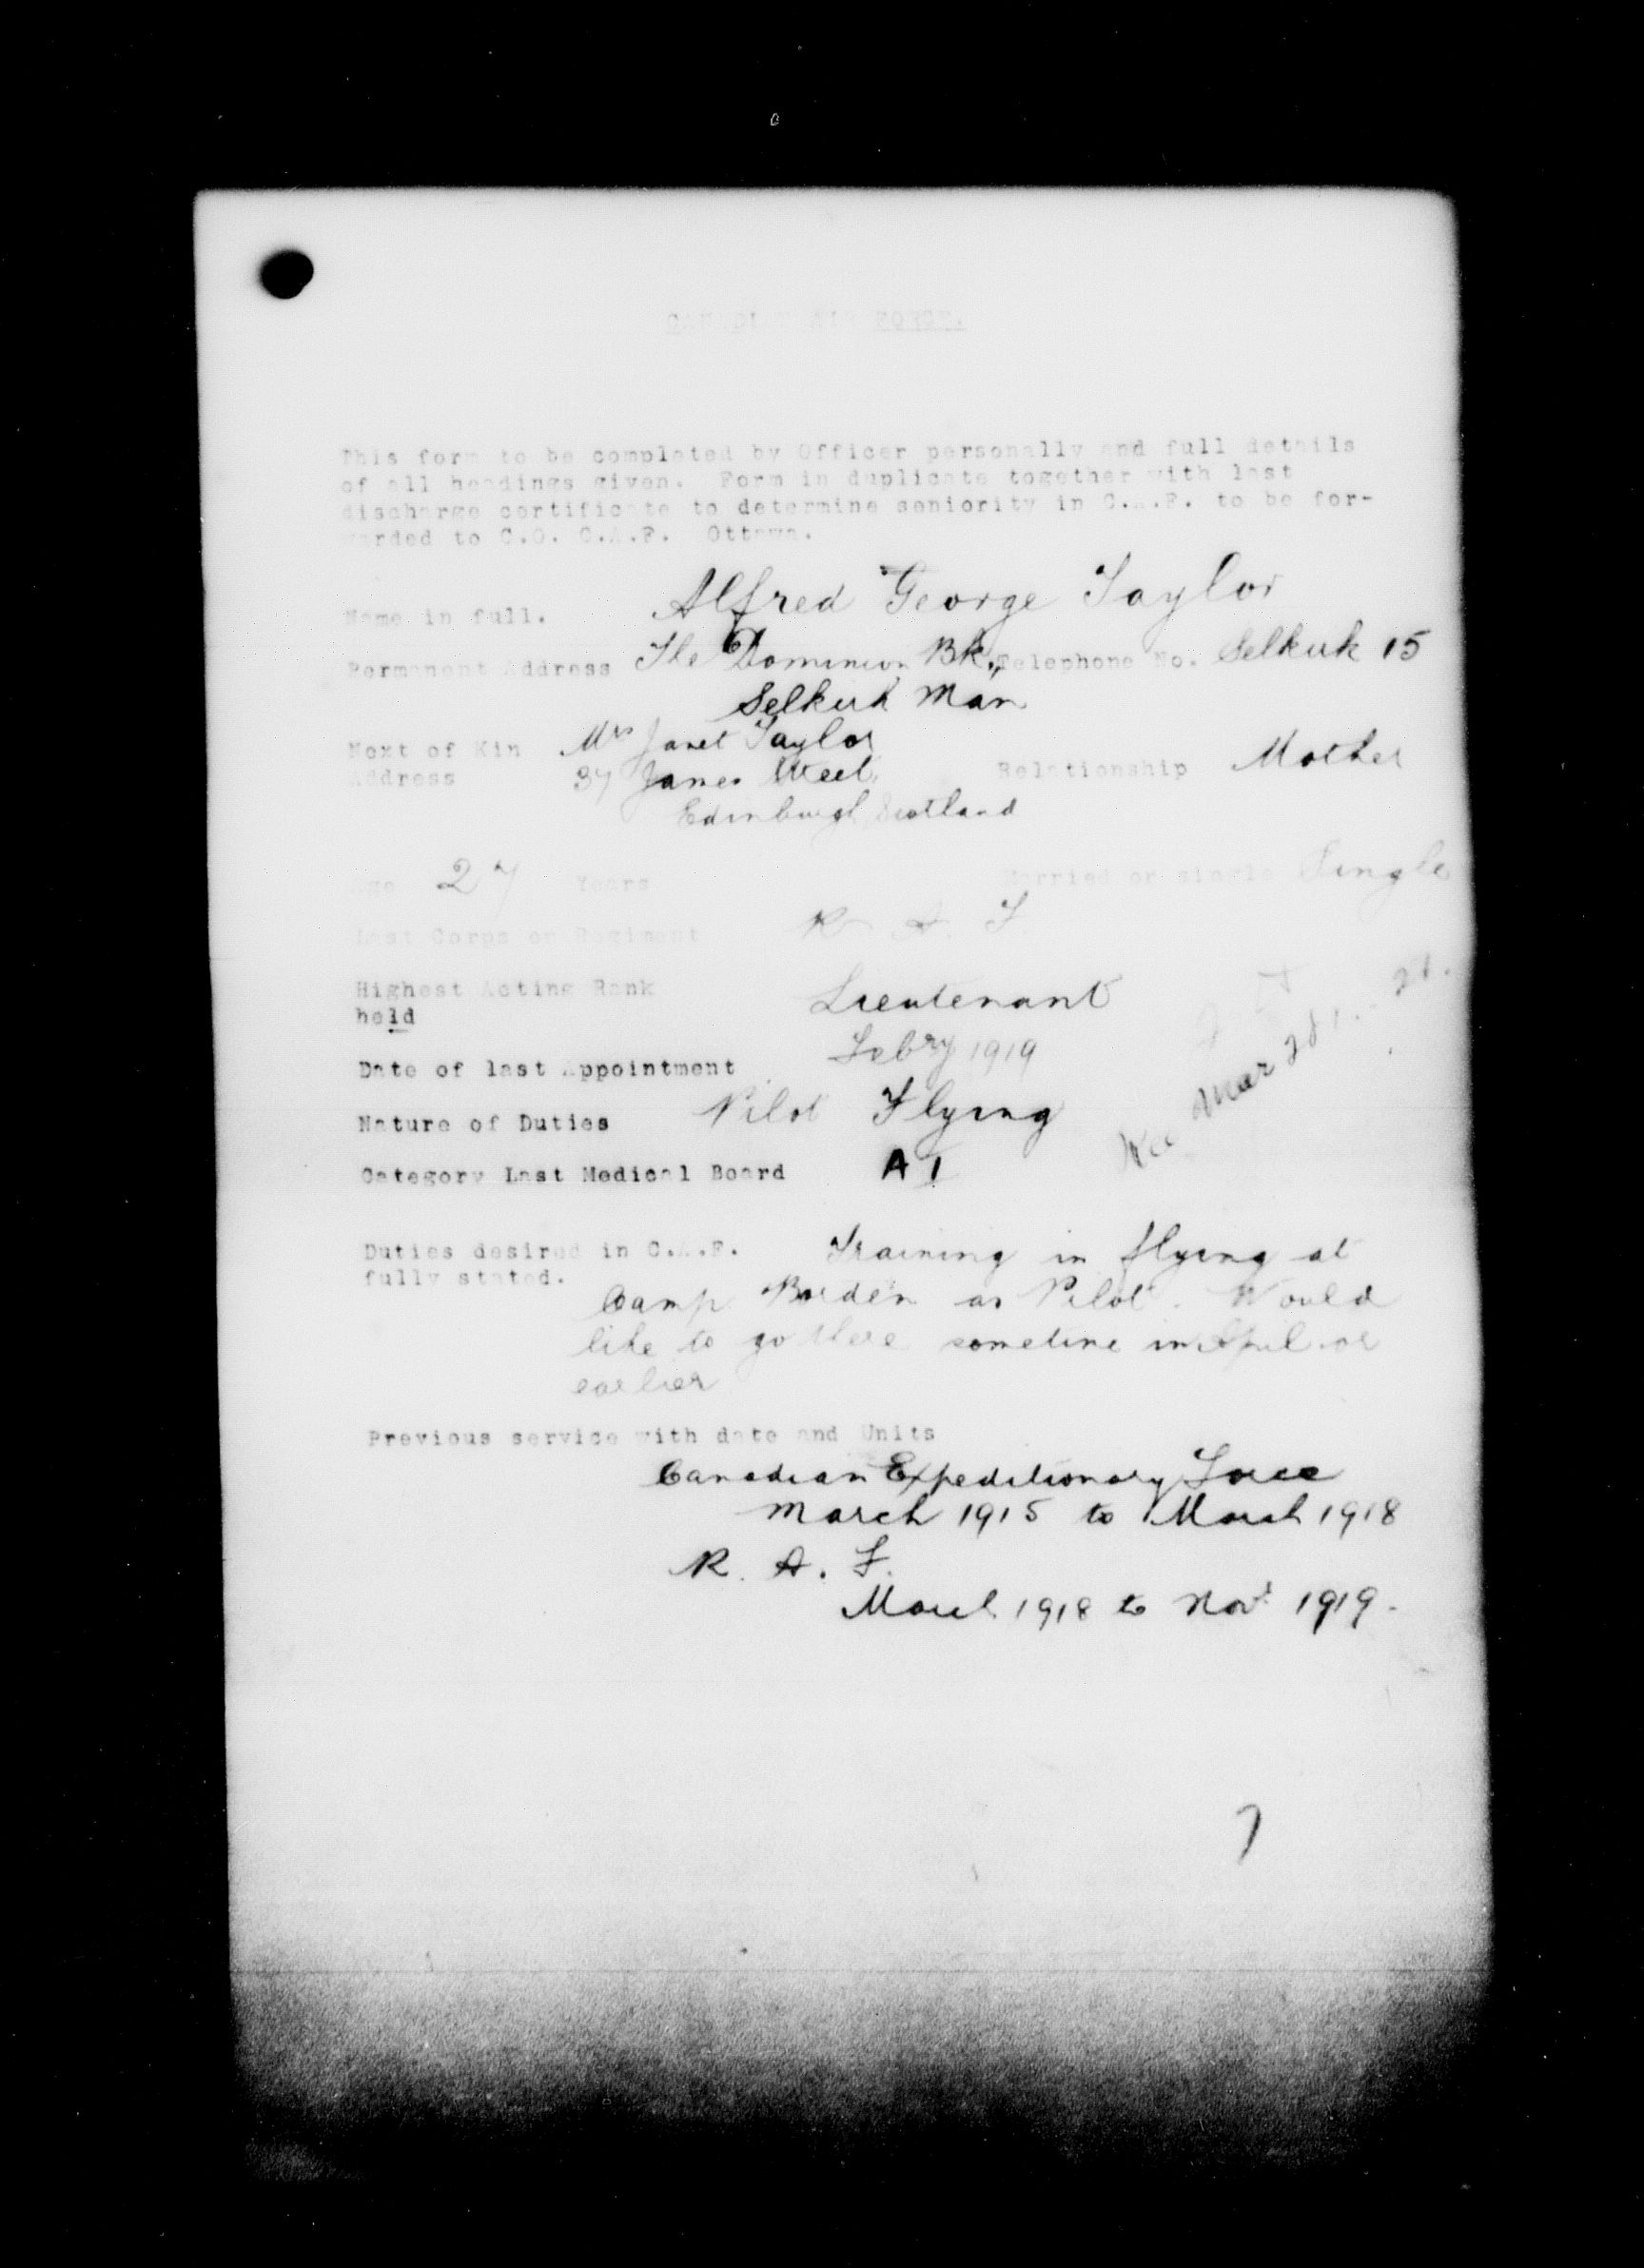 CANADIAN AIR FORCE.
This form to be completed by Officer personally and full details
of all headings given. Form in duplicate together with last
discharge certificate to determine seniority in C.A.F. to be for-
warded to C.O. C.A.F. Ottawa.
Name in full. Alfred George Taylor
Permanent Address The Dominion Bk., Telephone No. Selkirk 15
Selkirk Man
Next of Kin Mrs Janet Taylor
Address 37 James Street, Relationship Mother
Edinburgh Scotland
Age 27 Years Married or single Single
Last Corps or Regiment R. A. F.
Highest Acting Rank Lieutenant
held
Date of last Appointment Febry 1919
Nature of Duties Pilot Flying
Category Last Medical Board A I
Mar 28
Duties desired in C.A.F. Training in flying at
fully stated.
Camp Borden as Pilot. Would
like to go there sometime in April or
earlier
Previous service with date and Units
Canadian Expeditionary Force
March 1915 to March 1918
R. A. F.
March 1918 to Nov. 1919.
7